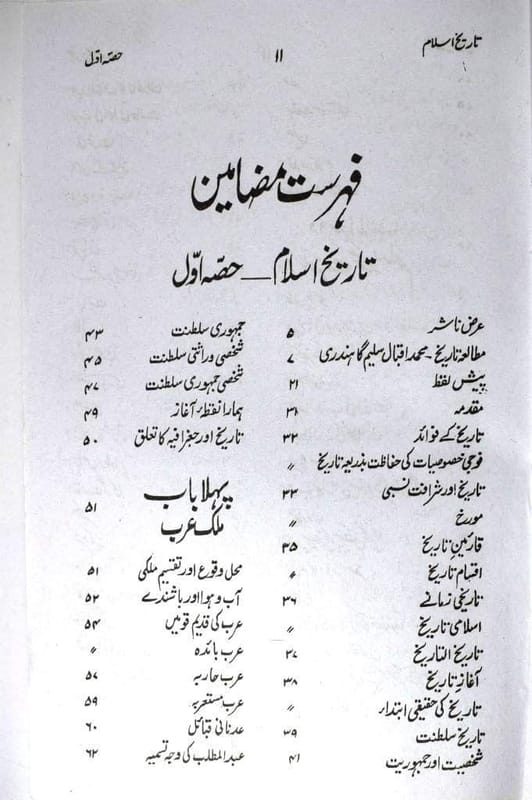 تاریخ اسلام ۱۱ حصہ اول
فہرست مضامین
تاریخ اسلام — حصہ اوّل
عرض ناشر ۵
مطالعہ تاریخ - محمد اقبال سلیم گاہندری ۷
پیش لفظ ۲۱
مقدمہ ۳۱
تاریخ کے فوائد ۳۲
قومی خصوصیات کی حفاظت بذریعہ تاریخ 〃
تاریخ اور شرافت نسبی ۳۳
مورخ 〃
قارئین تاریخ ۳۵
اقسام تاریخ 〃
تاریخی زمانے ۳۶
اسلامی تاریخ 〃
تاریخ التاریخ ۳۷
آغاز تاریخ ۳۸
تاریخ کی حقیقی ابتداء 〃
تاریخ سلطنت ۳۹
شخصیت اور جمہوریت ۴۱
جمہوری سلطنت ۴۳
شخصی وراثتی سلطنت ۴۵
شخصی جمہوری سلطنت ۴۷
ہمارا نقطۂ آغاز ۴۹
تاریخ اور جغرافیہ کا تعلق ۵۰
پہلا باب
ملک عرب ۵۱
محل وقوع اور تقسیم ملکی ۵۱
آب و ہوا اور باشندے ۵۲
عرب کی قدیم قومیں ۵۴
عرب بائدہ 〃
عرب عاربہ ۵۷
عرب مستعربہ ۵۹
عدنانی قبائل ۶۰
عبدالمطلب کی وجہ تسمیہ ۶۲